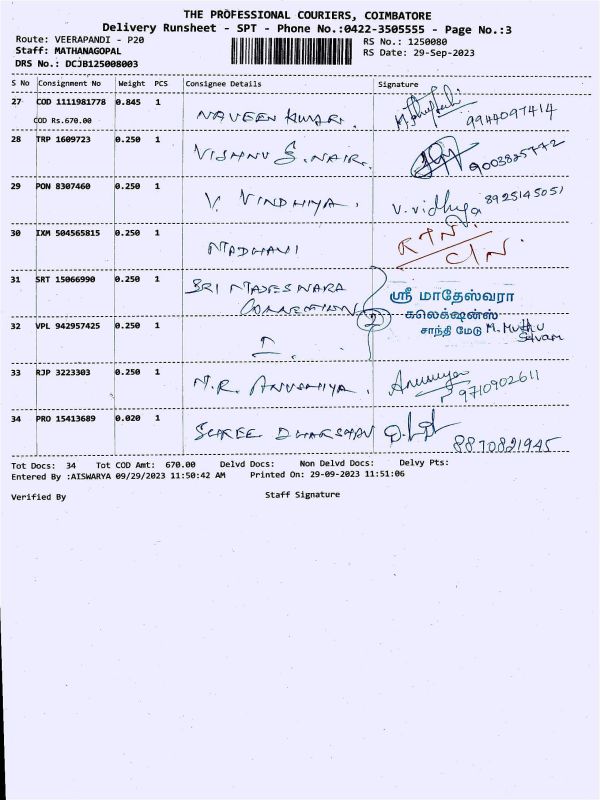 THE PROFESSIONAL COURIERS, COIMBATORE
Delivery Runsheet - SPT - Phone No.:0422-3505555 - Page No.:3
Route: VEERAPANDI - P20 RS No.: 1250080
Staff: MATHANAGOPAL RS Date: 29-Sep-2023
DRS No.: DCJB125008003
S No Consignment No Weight PCS Consignee Details Signature
27 COD 1111981778 0.845 1 NAVEEN KUMAR. 9944097414
COD Rs.670.00
28 TRP 1609723 0.250 1 VISHNU S. NAIR. 9003825742
29 PON 8307460 0.250 1 V. VINDHIYA. V. vidhya 8925145051
30 IXM 504565815 0.250 1 MADHANI RTN. C/N.
31 SRT 15066990 0.250 1 SRI MADESWARA
CONNECTION 2 ஸ்ரீ மாதேஸ்வரா
கலெக்ஷன்ஸ்
32 VPL 942957425 0.250 1 சாந்தி மேடு M. Muthu
Selvam
33 RJP 3223303 0.250 1 N.R. ANUSHIYA. Anusuya
9710902611
34 PRO 15413689 0.020 1 SHREE DHARSHAN
8870821945
Tot Docs: 34 Tot COD Amt: 670.00 Delvd Docs: Non Delvd Docs: Delvy Pts:
Entered By :AISWARYA 09/29/2023 11:50:42 AM Printed On: 29-09-2023 11:51:06
Verified By Staff Signature